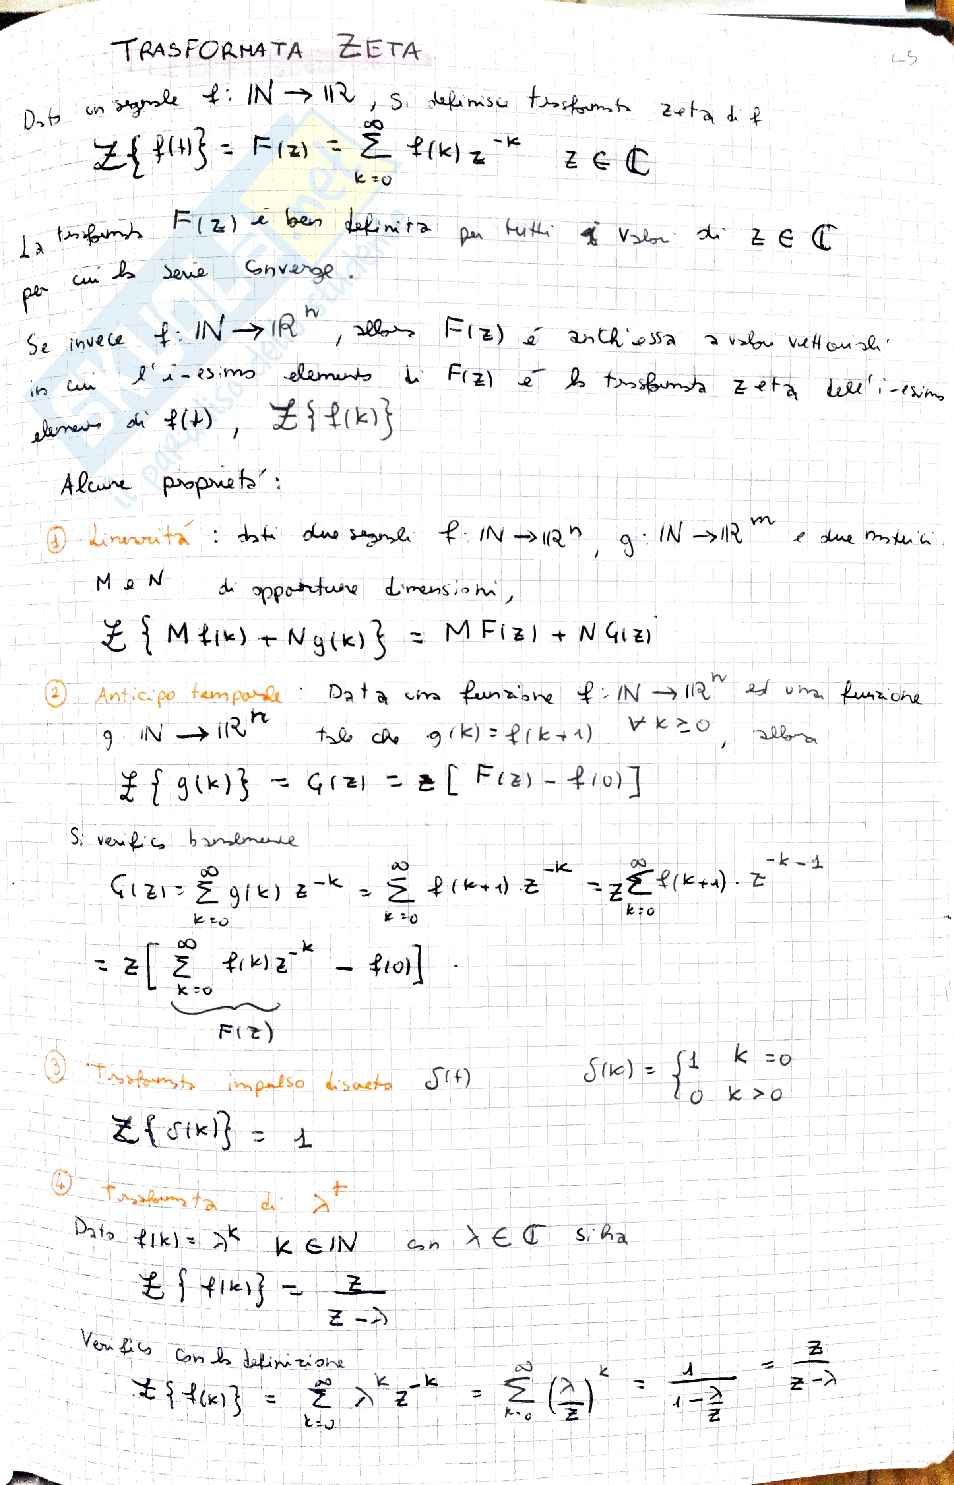 TRASFORMATA ZETA
Dato un segnale f: ℕ → ℝ, si definisce trasformata zeta di f
Z{f(t)} = F(z) = ∑_{k=0}^{∞} f(k) z^{-k}   z ∈ ℂ
La trasformata F(z) è ben definita per tutti i valori di z ∈ ℂ
per cui la serie converge.
Se invece f: ℕ → ℝ^n, allora F(z) é anch'essa a valori vettoriali
in cui l'i-esimo elemento di F(z) é la trasformata zeta dell'i-esimo
elemento di f(t), Z{f(k)}
Alcune proprietá:
① Linearitá : dati due segnali f: ℕ → ℝ^n, g: ℕ → ℝ^m e due matrici
M e N di opportune dimensioni,
Z{M f(k) + N g(k)} = M F(z) + N G(z)
② Anticipo temporale: Data una funzione f: ℕ → ℝ^n ed una funzione
g: ℕ → ℝ^n tale che g(k) = f(k+1) ∀ k ≥ 0, allora
Z{g(k)} = G(z) = z[F(z) - f(0)]
Si verifica banalmente
G(z) = ∑_{k=0}^{∞} g(k) z^{-k} = ∑_{k=0}^{∞} f(k+1)·z^{-k} = z∑_{k=0}^{∞} f(k+1)·z^{-k-1}
= z[∑_{k=0}^{∞} f(k) z^{-k} - f(0)].
F(z)
③ Trasformata impulso discreto δ(t)   δ(k) = { 1 k = 0
0 k > 0
Z{δ(k)} = 1
④ Trasformata di λ^t
Dato f(k) = λ^k k ∈ ℕ con λ ∈ ℂ si ha
Z{f(k)} = z/(z-λ)
Verifica con la definizione
Z{f(k)} = ∑_{k=0}^{∞} λ^k z^{-k} = ∑_{k=0}^{∞} (λ/z)^k = 1/(1-λ/z) = z/(z-λ)
SKUOLA.net
il paradiso dello studente